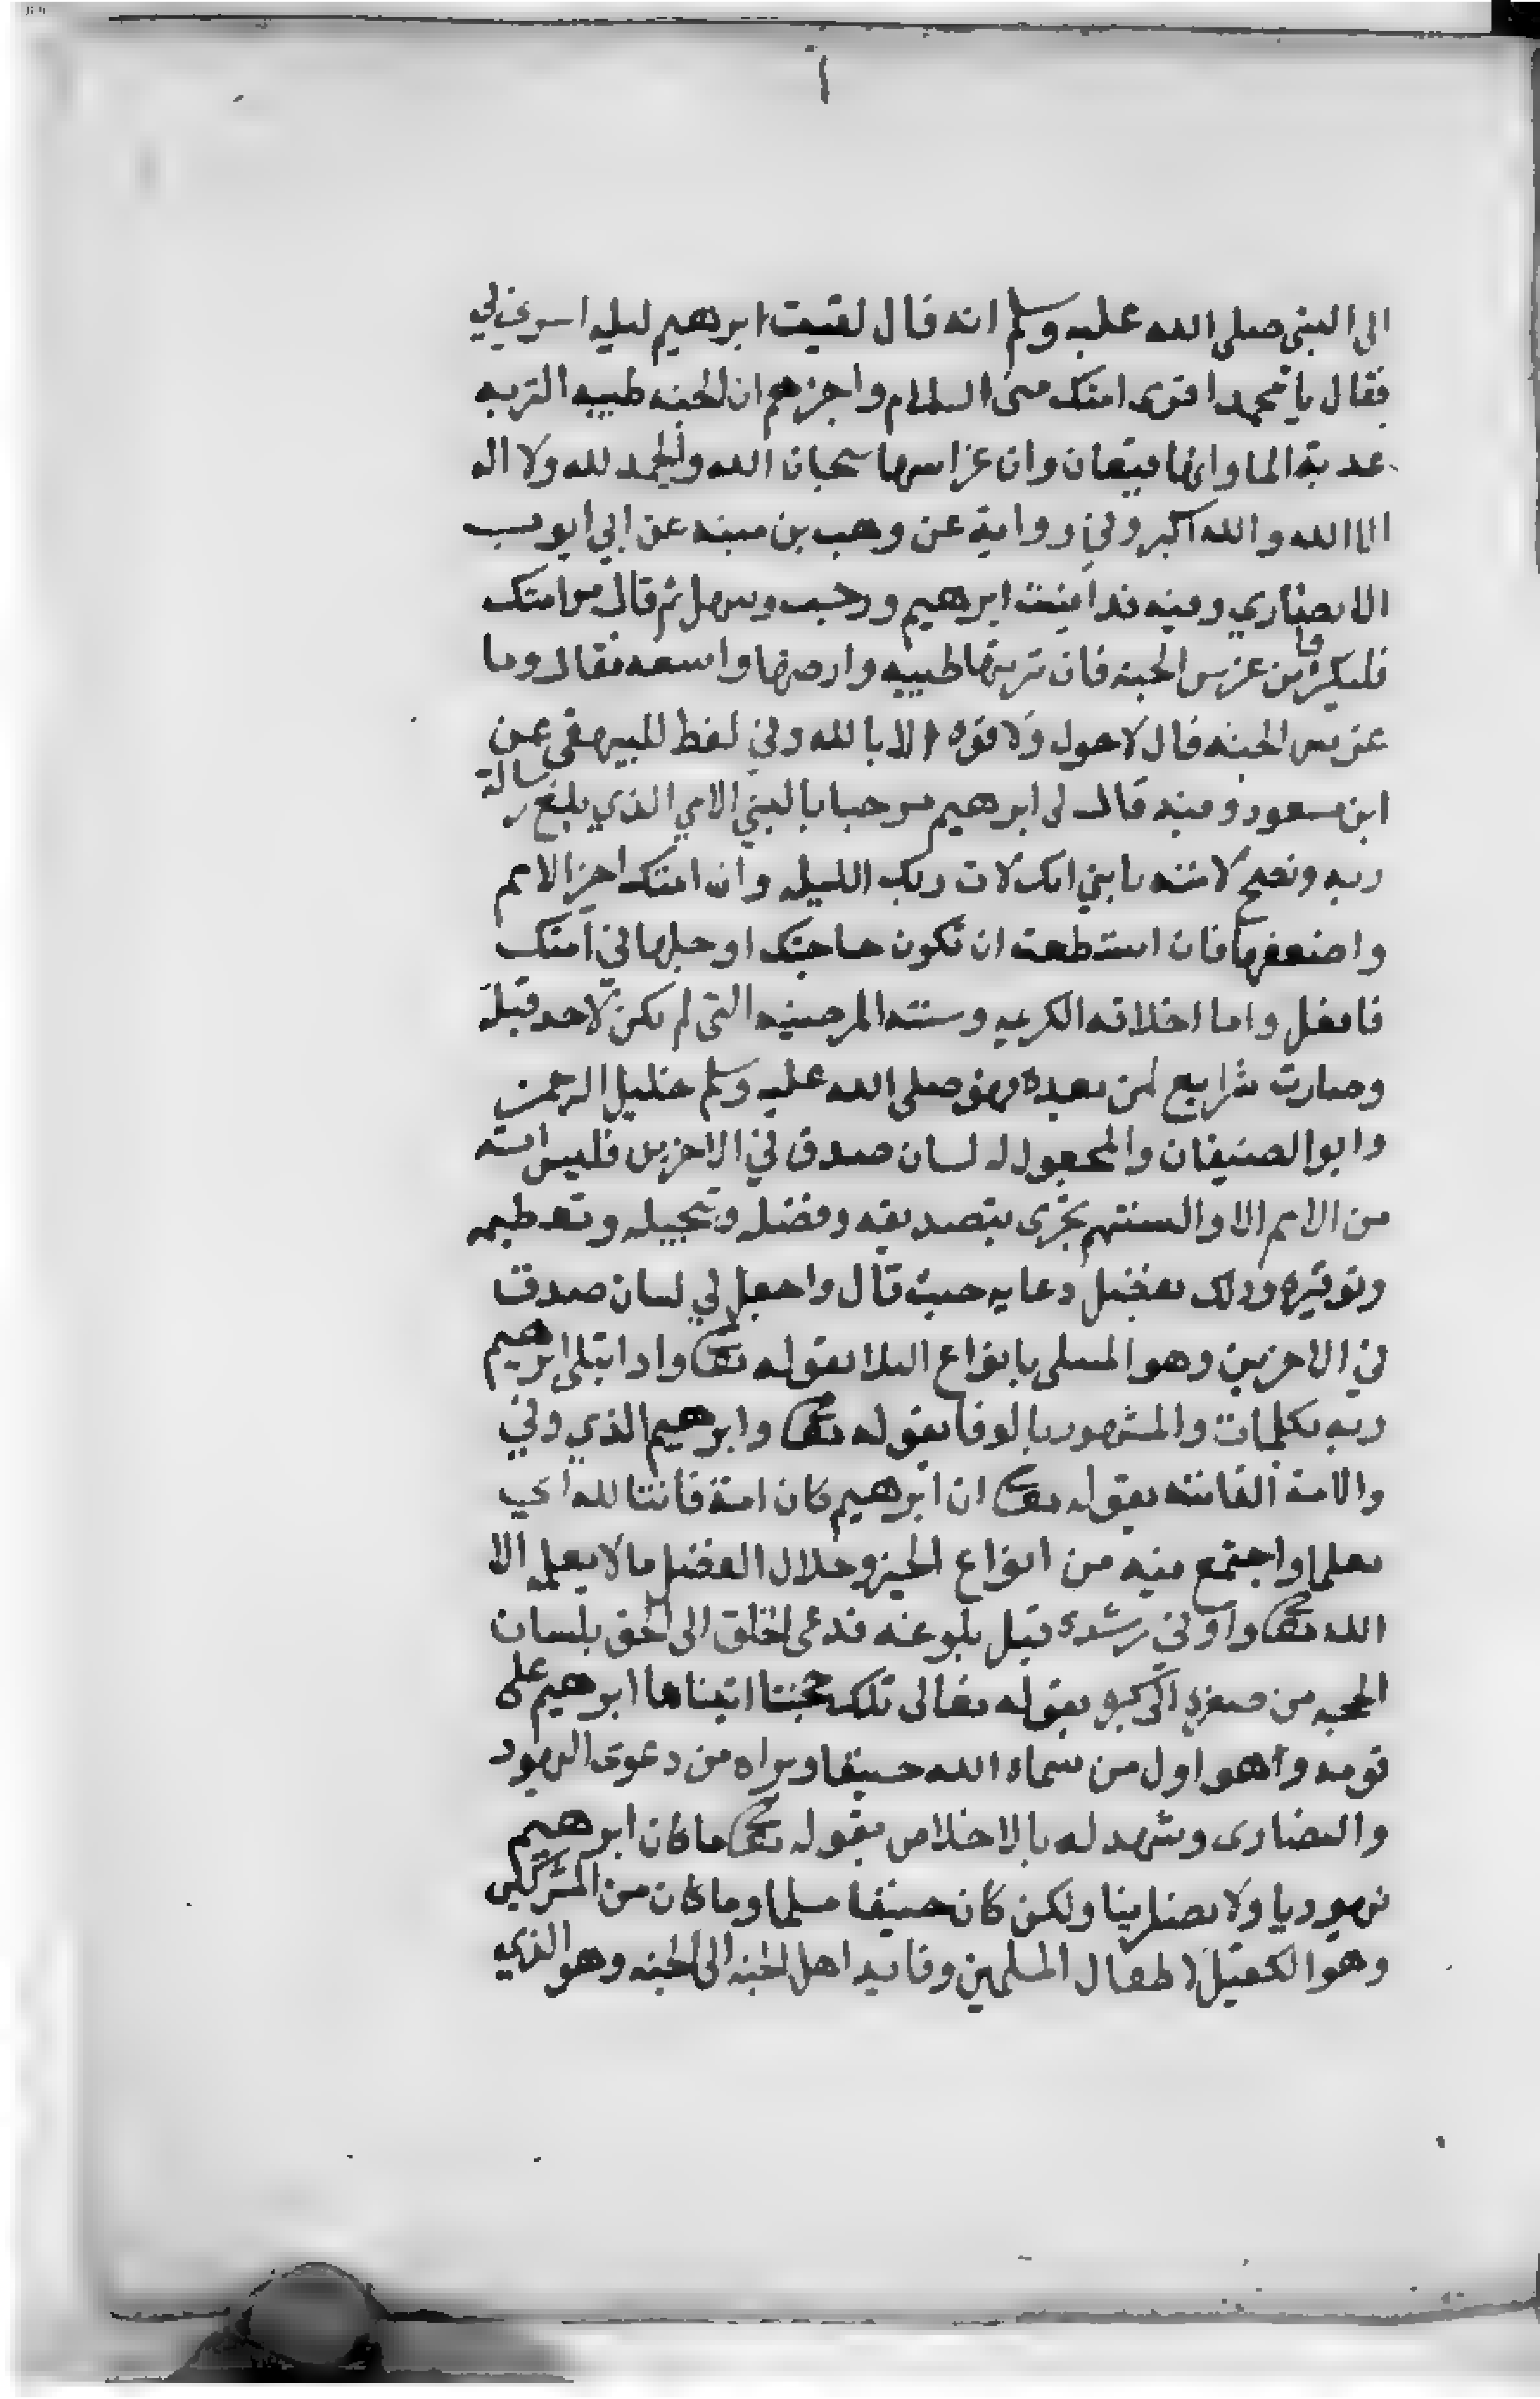 الى النبي صلى الله عليه وسلم انه قال لقيت ابرهيم ليله اسري بي
فقال يا محمد اقرى امتك منى السلام واخبرهم ان الجنه طيبه التربه
عذبة الما وانها قيعان وان غراسها سبحان الله والحمد لله ولا اله
الا الله والله اكبر وفي رواية عن وهب بن منبه عن ابي ايوب
الانصاري وفيه فداينت ابرهيم ورحب وسهل ثم قال مر امتك
فليكثروا من غرس الجنه فان تربتها طيبه وارضها واسعه فقال وما
غرس الجنه قال لا حول ولا قوه الا بالله وفي لفظ للبيهقي عن
ابن مسعود وفيه قال لى ابرهيم مرحبا بالنبي الامي الذي بلغ رسالة
ربه ونصح لامته يا بني انك لاق ربك الليله وان امتك اخر الامم
واضعفها فان استطعت ان تكون حاجتك او جلها في امتك
فافعل واما اخلاقه الكريمه وسنته المرضيه التى لم تكن لاحد قبله
وصارت شرايع لمن بعده فهو صلى الله عليه وسلم خليل الرحمن
وابو الضيفان والمجعول له لسان صدق في الاخرين فليس امة
من الامم الا والسنتهم تجرى بتصديقه وفضله وتبجيله وتعظيمه
وتوقيره وذلك بفضل دعايه حيث قال واجعل لي لسان صدق
في الاخرين وهو المبتلى بانواع البلا بقوله تعالى واذ ابتلى ابرهيم
ربه بكلمات والمشهور بالوفا بقوله تعالى وابرهيم الذي وفي
والامة القانته بقوله تعالى ان ابرهيم كان امة قانتا لله اي
معلما واجتمع فيه من انواع الخير وخلال الفضل ما لا يعلمه الا
الله تعالى واوتي رشده قبل بلوغه فدعى الخلق الى الحق بلسان
الحجه من صغره الى كبره بقوله تعالى تلك حجتنا اتيناها ابرهيم على
قومه وهو اول من سماه الله حنيفا وبراه من دعوى اليهود
والنصارى وشهد له بالاخلاص بقوله تعالى ما كان ابرهيم
يهوديا ولا نصرانيا ولكن كان حنيفا مسلما وما كان من المشركين
وهو الكفيل لاطفال المسلمين وقايد اهل الجنه الى الجنه وهو الذي